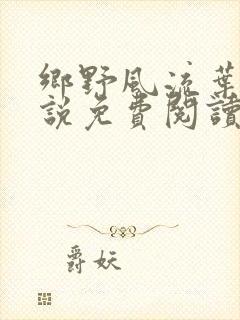 鄉野風流葉
說免費閱讀
爵妖